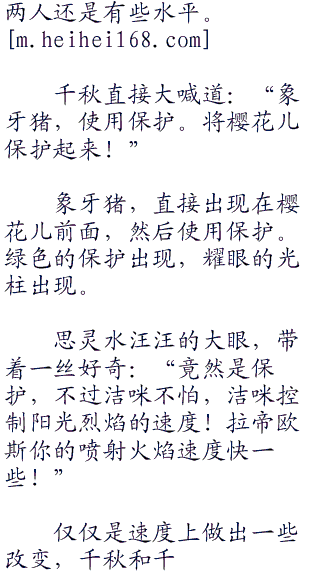 两人还是有些水平。
[m.heihei168.com]
千秋直接大喊道：“象
牙猪，使用保护。将樱花儿
保护起来！”
象牙猪，直接出现在樱
花儿前面，然后使用保护。
绿色的保护出现，耀眼的光
柱出现。
思灵水汪汪的大眼，带
着一丝好奇：“竟然是保
护，不过洁咪不怕，洁咪控
制阳光烈焰的速度！拉帝欧
斯你的喷射火焰速度快一
些！”
仅仅是速度上做出一些
改变，千秋和千